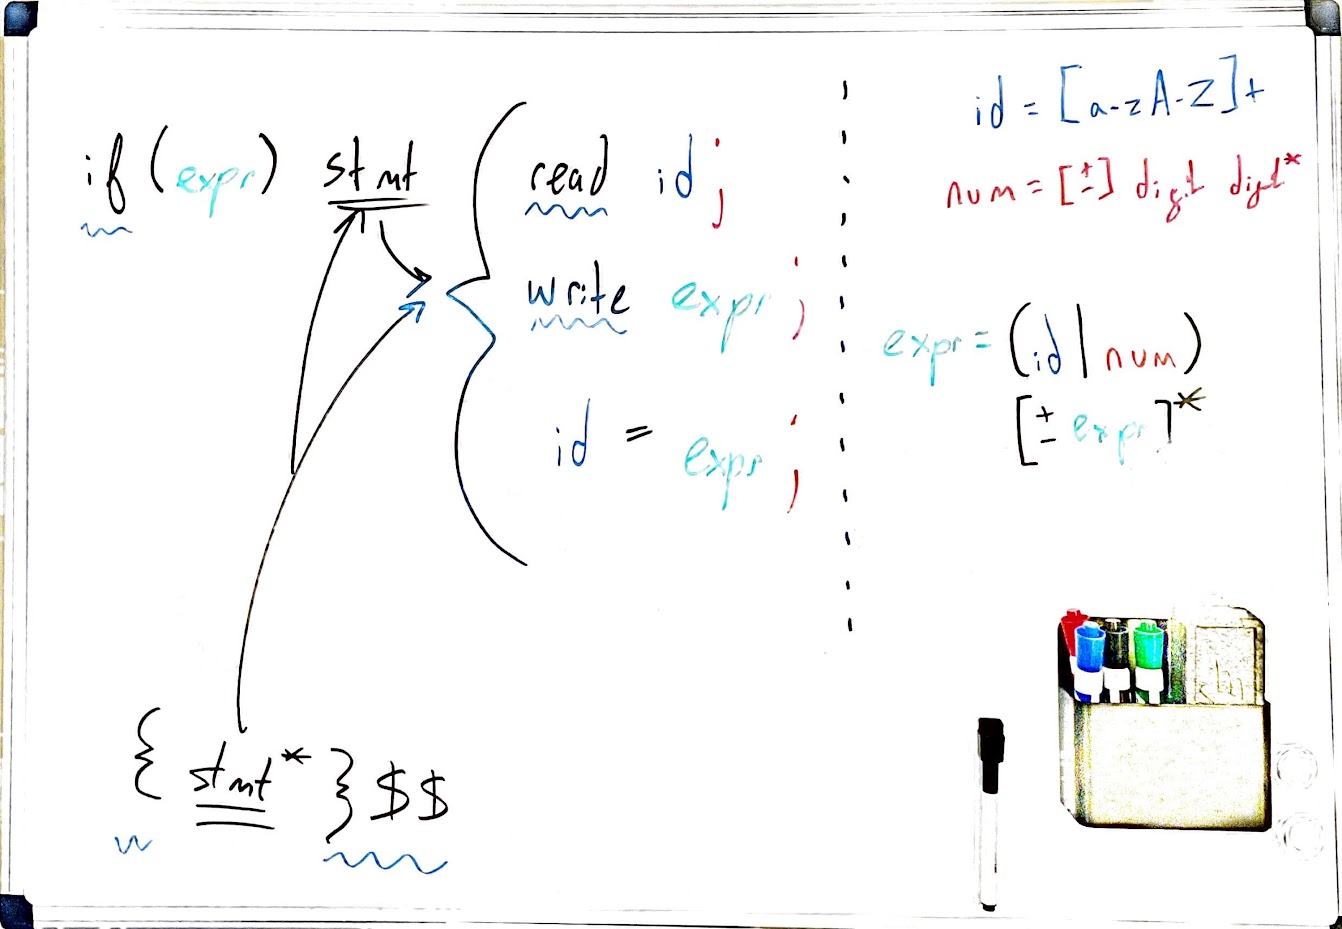 if (expr) stmt
read id;
write expr;
id = expr;
{ stmt* } $$
id = [a-zA-Z]+
num = [±] digit digit*
expr = (id | num)
[± expr]*